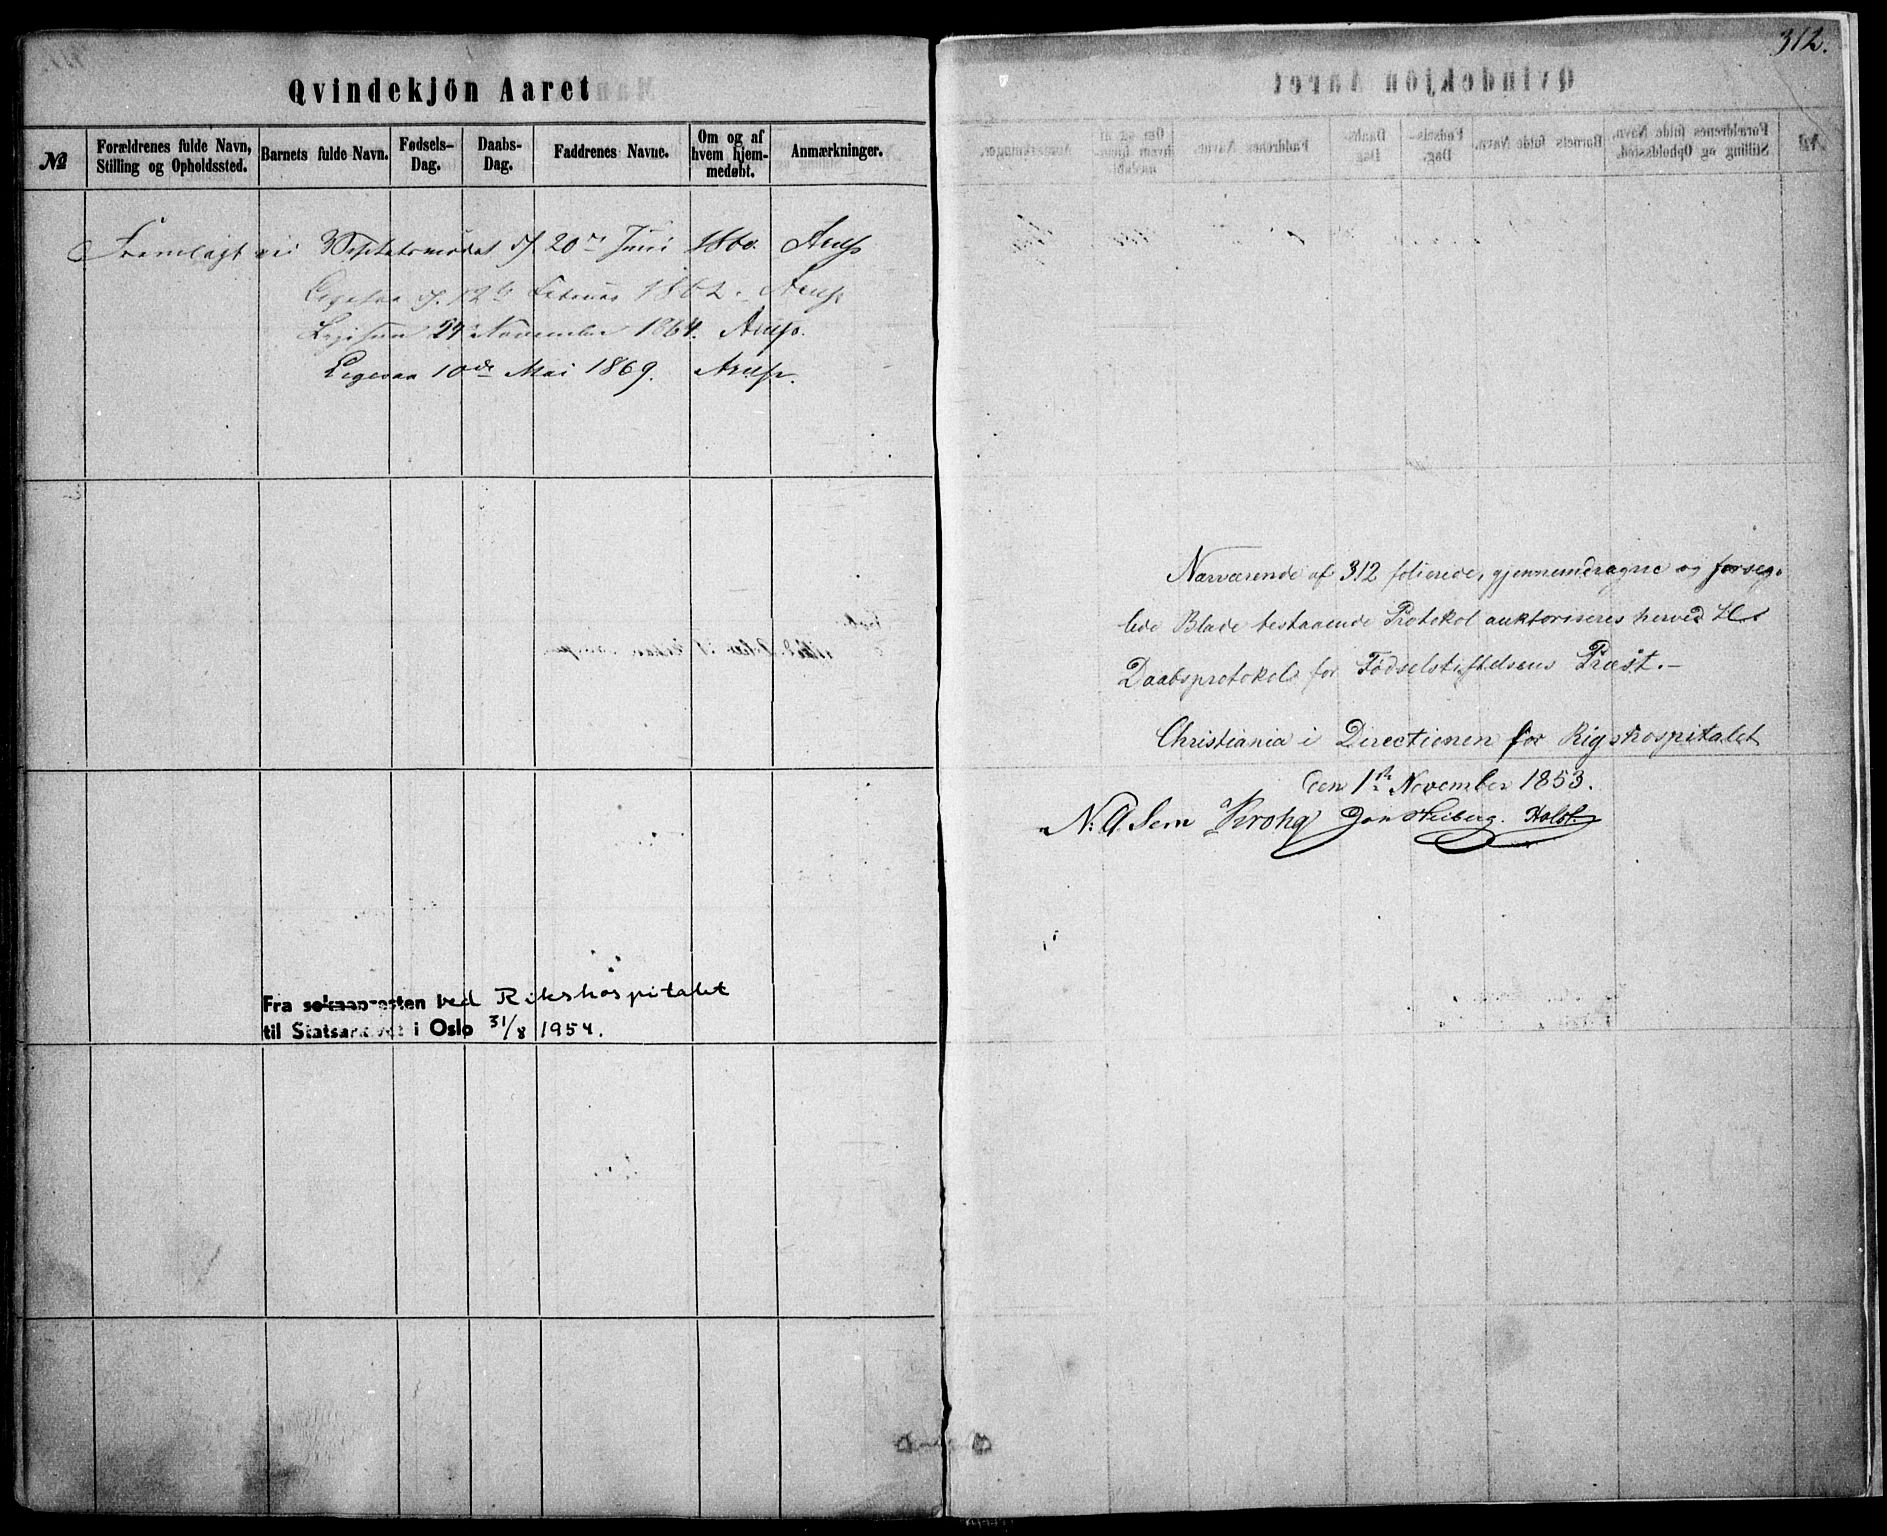 Qvindekjön Aaret
№
Forældrenes fulde Navn,
Stilling og Opholdssted.
Barnets fulde Navn.
Fødsels-
Dag.
Daabs-
Dag.
Faddrenes Navne.
Om og af
hvem hjem-
medøbt.
Anmærkninger.
Fremlagt ved Visitatsmødet d. 20de Juni 1860. Arup
Ligesaa d. 12te Februar 1862. Arup
Ligesaa 24 November 1864. Arup.
Ligesaa 10de Mai 1869. Arup.
Fra soknepresten ved Rikshospitalet
til Statsarkivet i Oslo 31/8 1954.
312.
Nærværende af 312 folierede, gjennemdragne og forseg-
lede Blade bestaaende Protokol auktoriseres herved til
Daabsprotokol for Fødselstiftelsens Præst.-
Christiania i Directionen for Rigshospitalet
den 1ste November 1853.
N. A. Sem Krohg Heiberg. Holst.